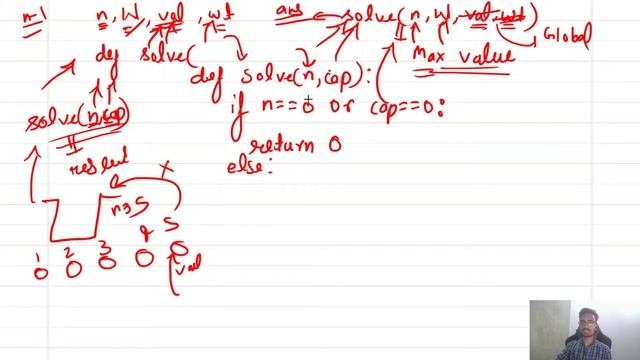 n-1 n, W, val, wt ans solve(n, W, val, wt)
Global
def solve( max value
def solve(n,cap):
if n==0 or cap==0:
return 0
else:
solve(n,cap)
result
n=5
5
1 2 3 4
val